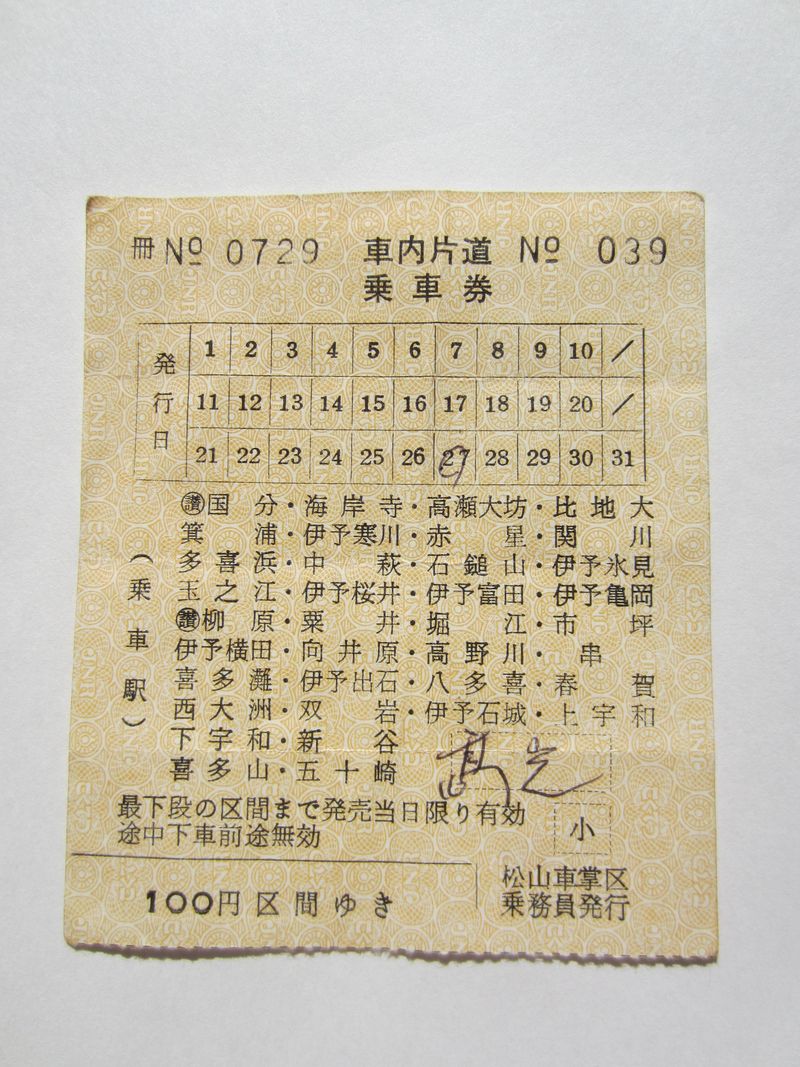 冊 № 0729 車内片道 № 039
乗車券
発行日
1 2 3 4 5 6 7 8 9 10 /
11 12 13 14 15 16 17 18 19 20 /
21 22 23 24 25 26 27 28 29 30 31
(乗車駅)
讃国分・海岸寺・高瀬大坊・比地大
箕浦・伊予寒川・赤星・関川
多喜浜・中萩・石鎚山・伊予氷見
玉之江・伊予桜井・伊予富田・伊予亀岡
讃柳原・粟井・堀江・市坪
伊予横田・向井原・高野川・串
喜多灘・伊予出石・八多喜・春賀
西大洲・双岩・伊予石城・上宇和
下宇和・新谷
喜多山・五十崎
最下段の区間まで発売当日限り有効
途中下車前途無効
小
100円区間ゆき
松山車掌区
乗務員発行